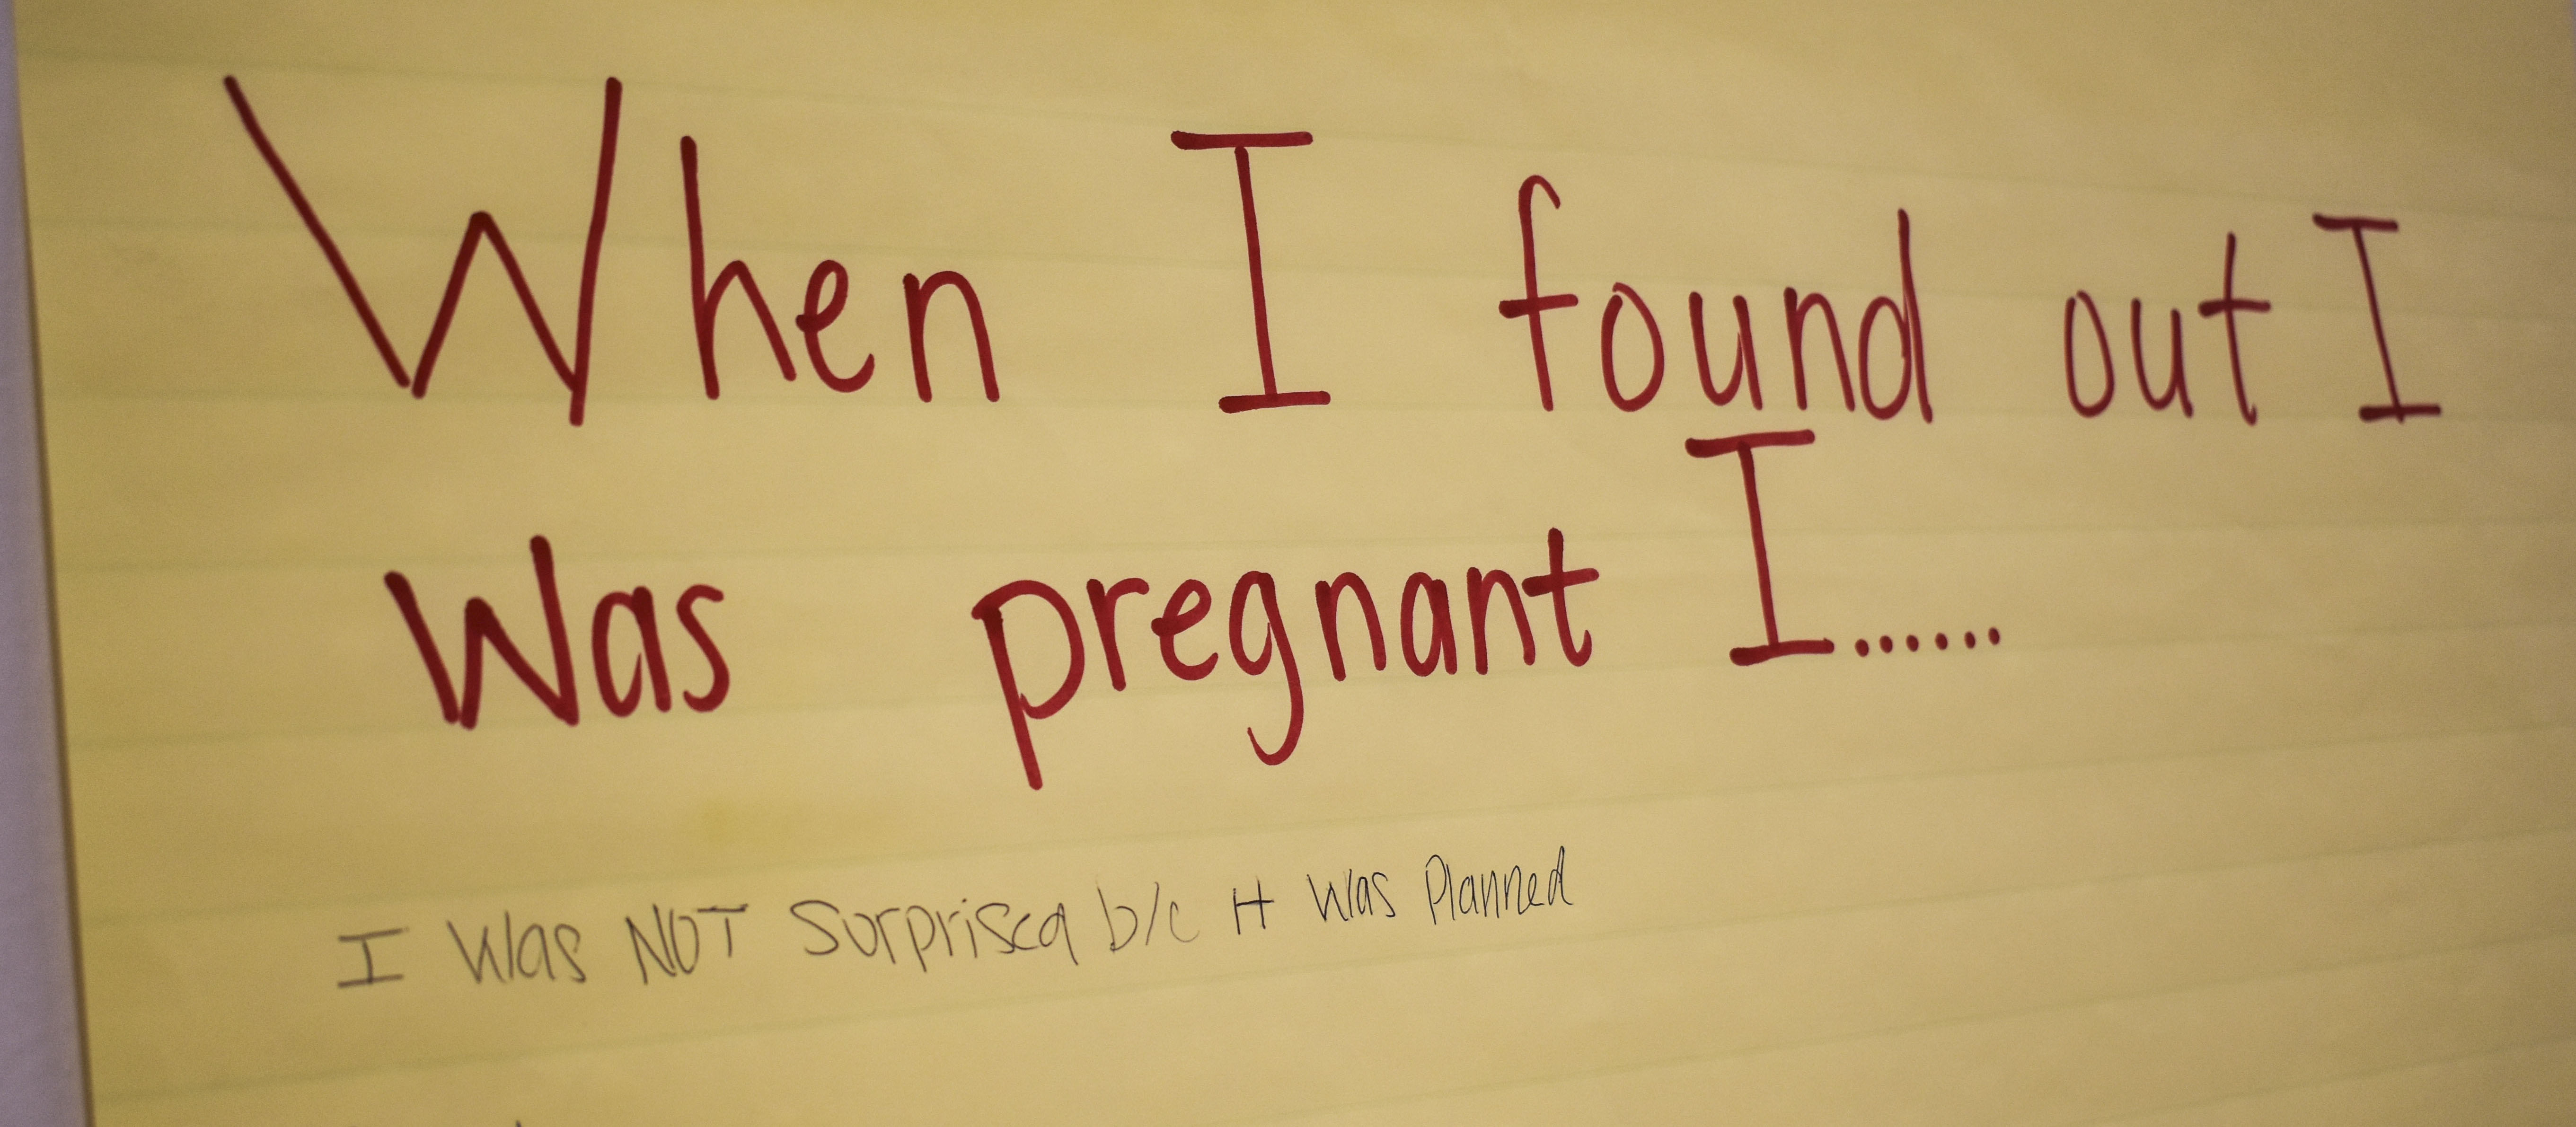 When I found out I
Was pregnant I......
I Was NOT Surprised b/c It Was Planned